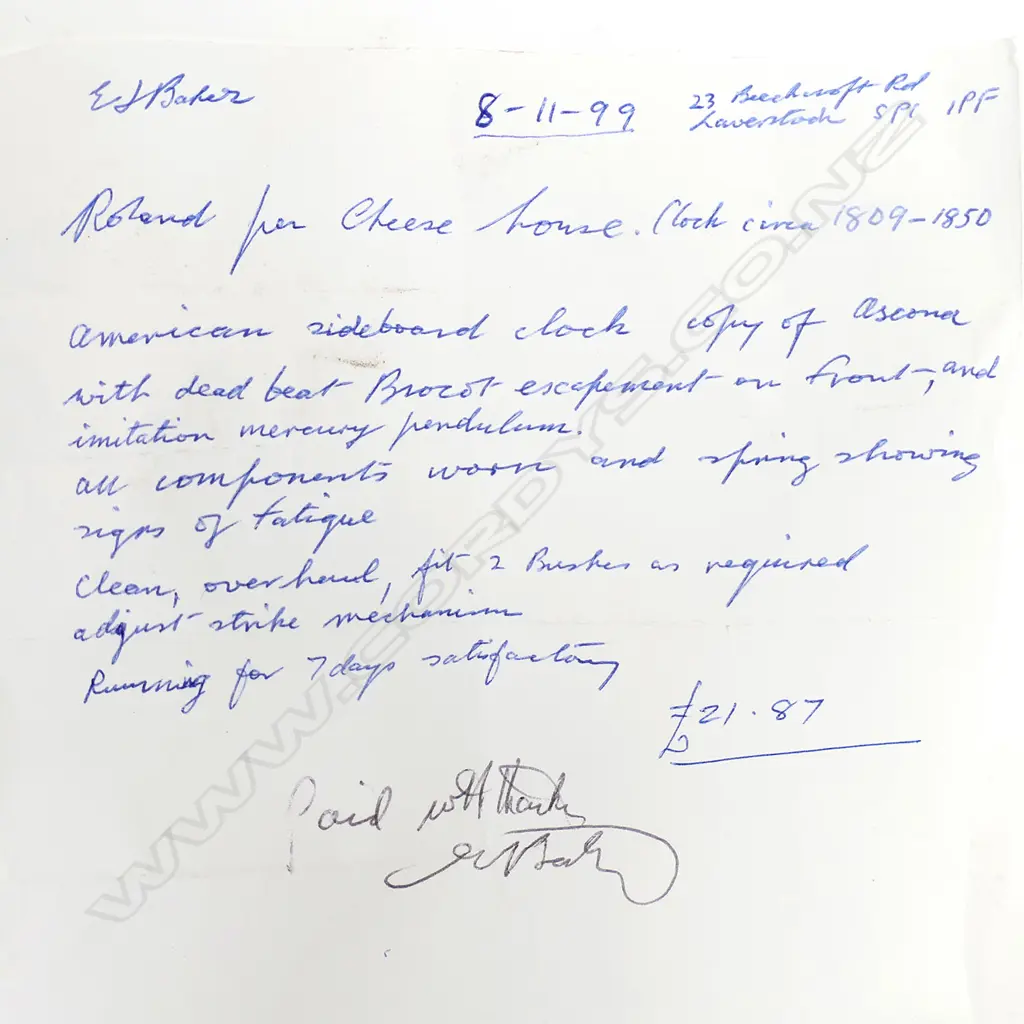 E J Baker
8-11-99
23 Beechcroft Rd
Laverstock SP1 1PF
Roland per Cheese house. Clock circa 1809-1850
American sideboard clock copy of Ascona
with dead beat Brocot escapement on front, and
imitation mercury pendulum.
all components worn and spring showing
signs of fatigue
Clean, overhaul, fit 2 Bushes as required
adjust strike mechanism
Running for 7 days satisfactory
£21.87
Paid with thanks
E J Baker
WWW.CORDYS.CO.NZ